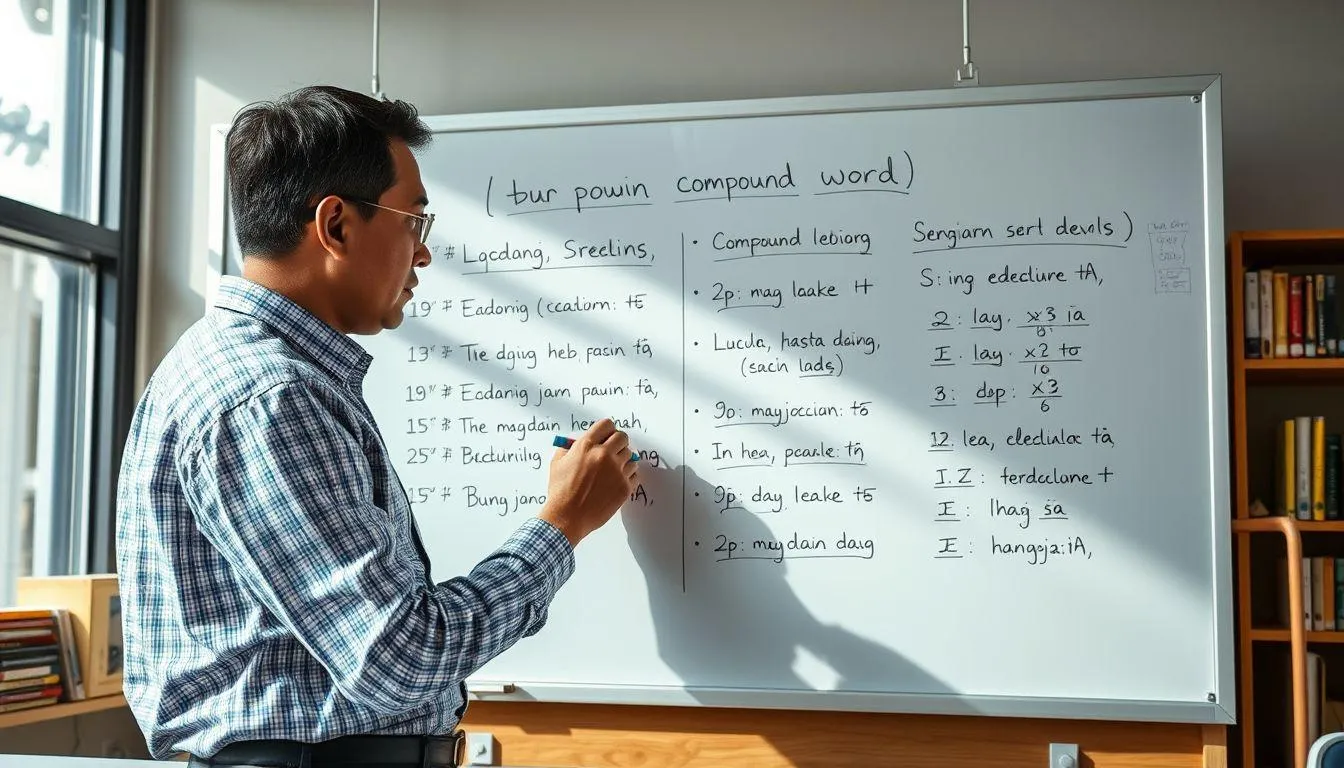 (tur powin compound word)
# Lqcdang, Sreelins,
19" # Eadorig (ccadorn: tE
13" # Tie dgiug heb, pasin tą
19" # Ecdanig jarn pauin: tā,
15" # The magdain
25" # Bectiriilig
15" # Bung jano iA,
• Compound lebiorg
• 2p: mag laake tt
• Luculu, hasta daing,
(sach lads)
• 9o: mayjoccian: t5
• In hea, pcarle: tn
• 9p: day, leake t5
• 2p: muy dain daug
Sengiarn sert devols)
S: ing edeclure tA,
2: lay. x3 ia
I. lay. x2 to
10
3: dep: x3
6
12. lea, cledialax tā
I. Z: ferdcclane t
I: lhag sa
I: hangsja:iA,